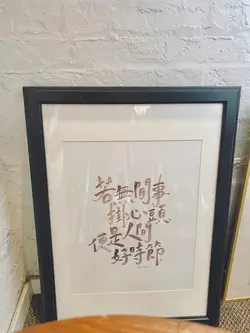 若無閒事
掛心頭
便是人間
好時節